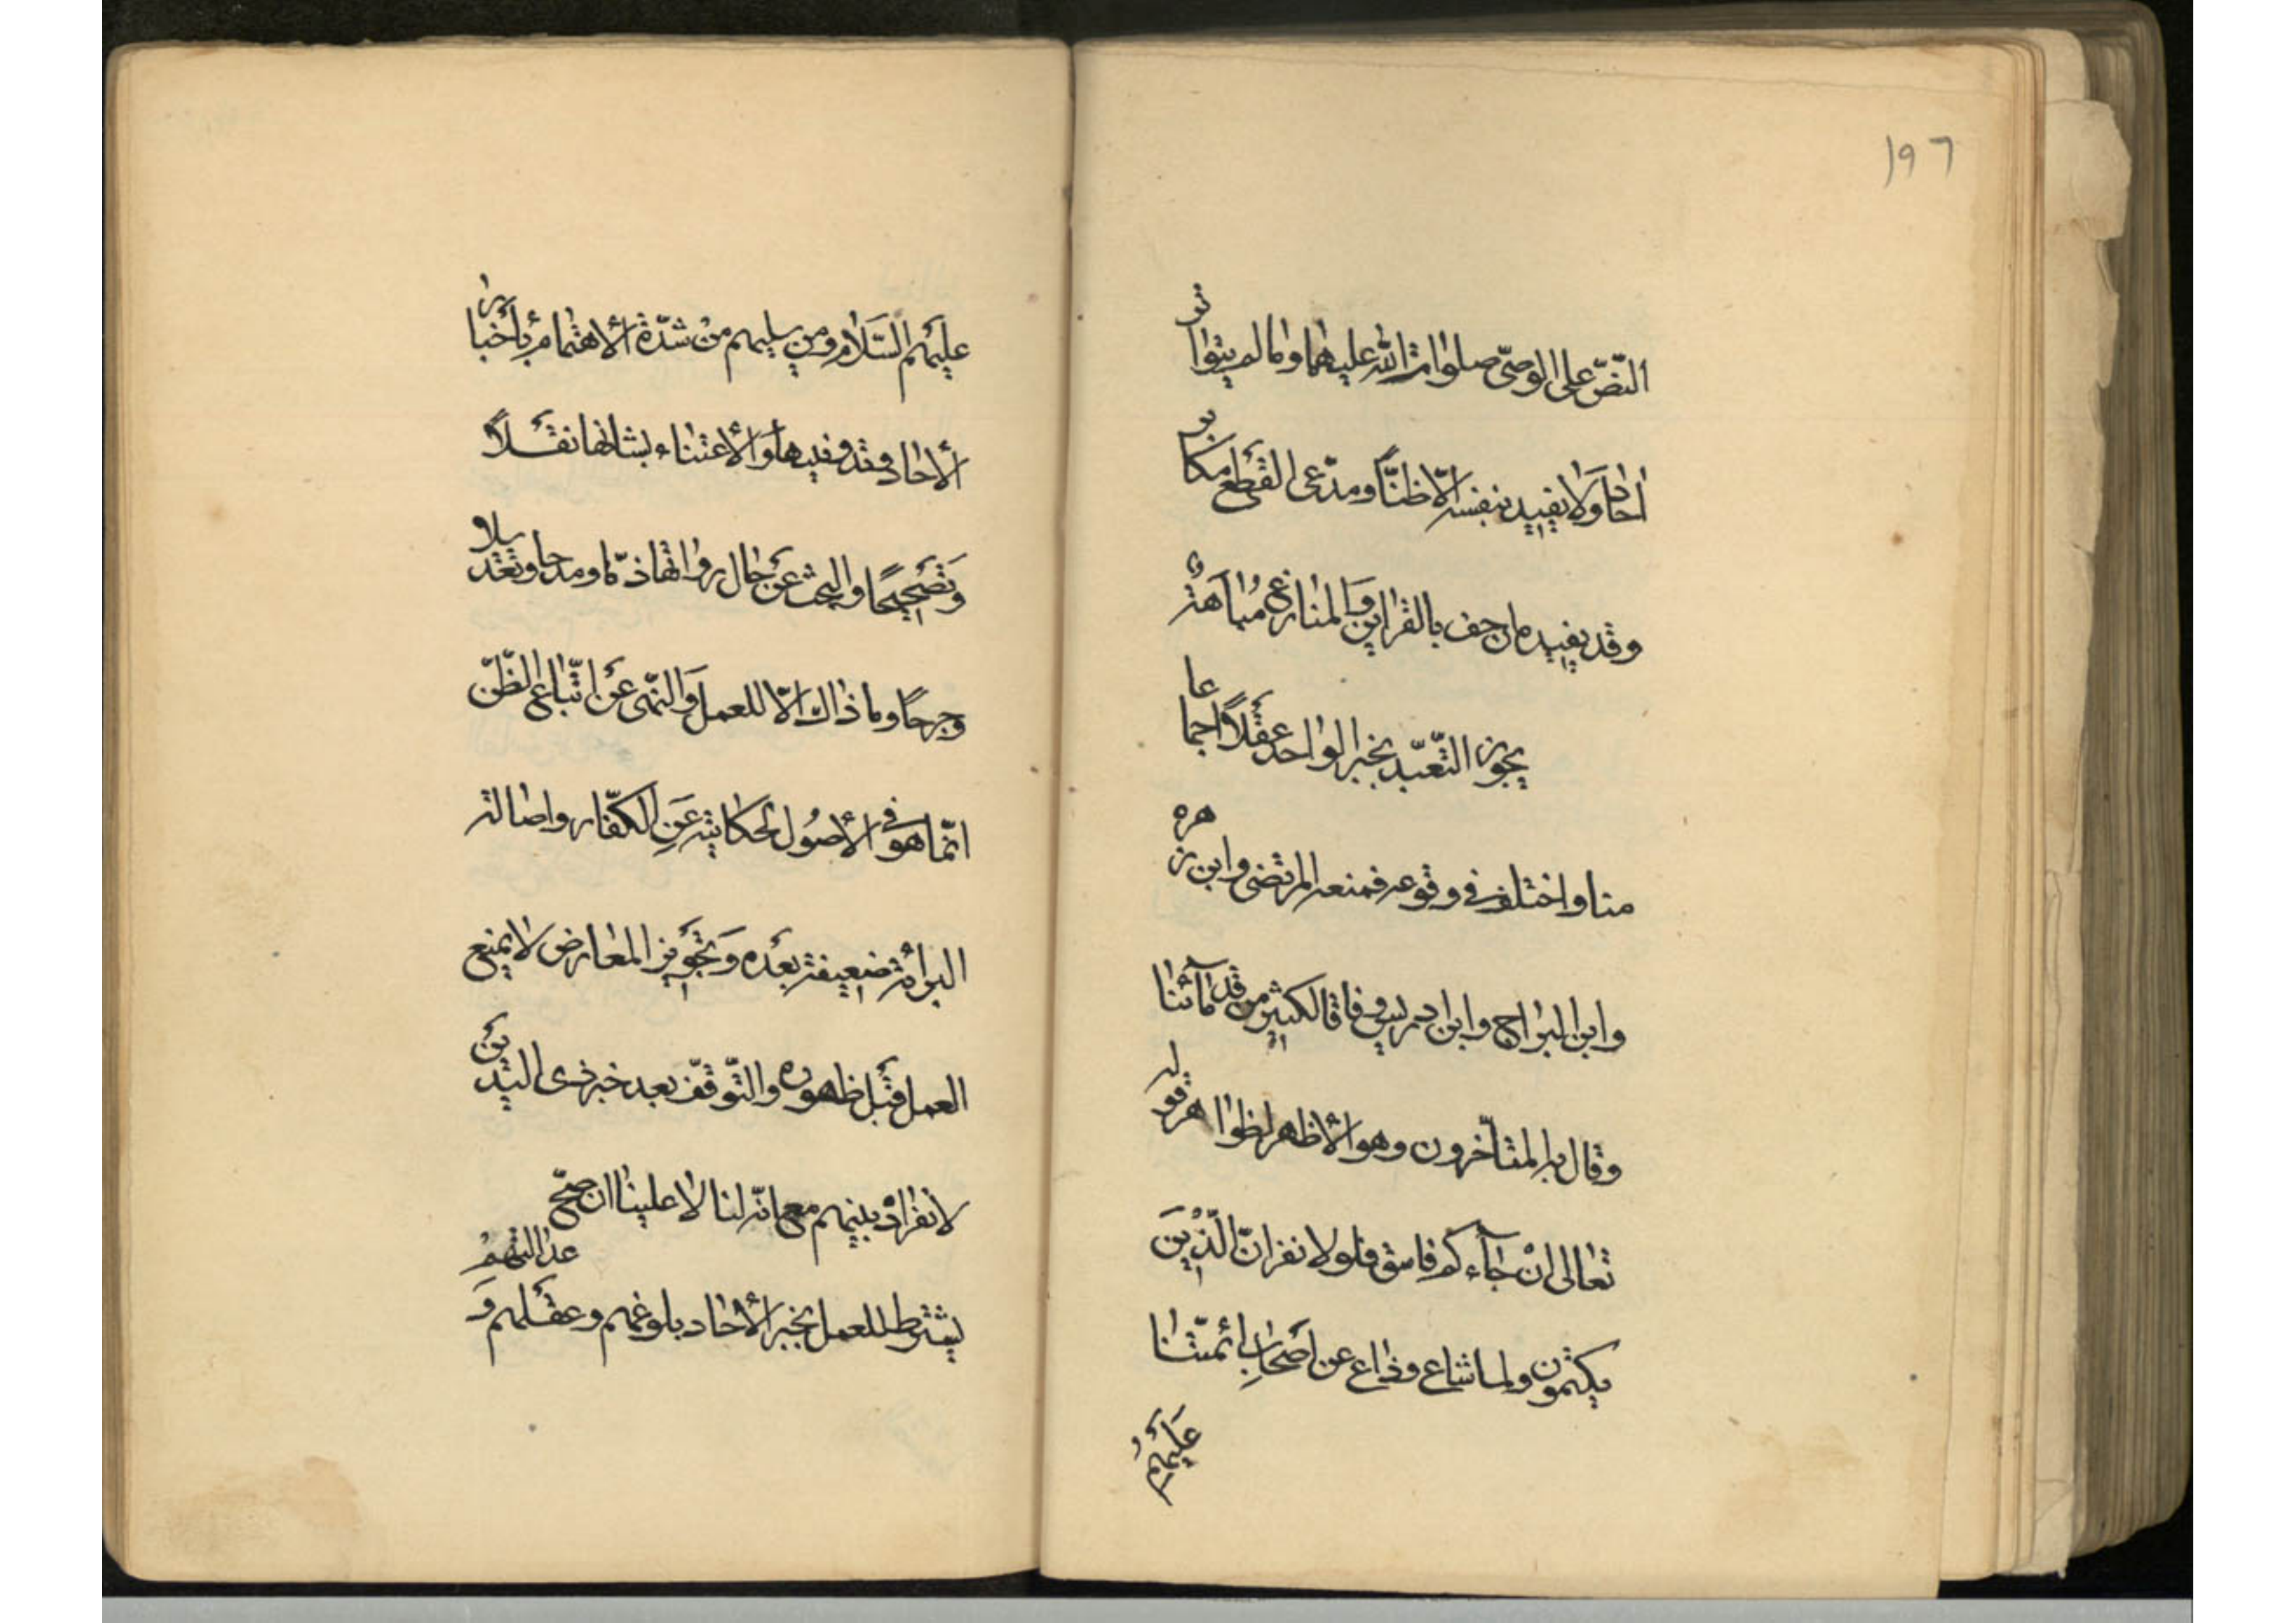 ١٩٦
النّصّ على الوصىّ صلوات الله عليهما وما لم يتواتر
احاد ولا يفيد بنفسه الّا ظنّاً ومدّعى القطع مكابر
وقد يفيده ان حف بالقراين والمنازع مباهت
يجوز التّعبّد بخبر الواحد عقلاً اجماعا
منا واختلف فى وقوعه فمنعه المرتضى وابن زهره
وابن البراج وابن ادريس وفاقا لكثير من قدمآئنا
وقال به المتأخرون وهو الأظهر لظواهر قوله
تعالى ان جآءكم فاسق فلولا نفر انّ الّذين
يكتمون ولما شاع وذاع عن اصحاب ائمتّنا
عليهم
عليهم السّلام ومن يليهم من شدّة الاهتمام بأخبار
الأحاد وتدوينها والأعتناء بشأنها نقلاً
وتصحيحًا والبحث عن حال رواتها ذمّا ومدحا وتعديلا
وجرحًا وما ذاك الّا للعمل والنّهى عن اتّباع الظّنّ
انّما هو فى الأصول لحكايته عن الكفّار واصالة
البرائة ضعيفة بعده وتجويز المعارض لا يمنع
العمل قبل ظهوره والتّوقّف بعد خبر ذى اليدين
لانفراده بينهم مع انّه لنا لا علينا ان صحّ
يشترط للعمل بخبر الأحاد بلوغهم وعقلهم و
عدالتهم